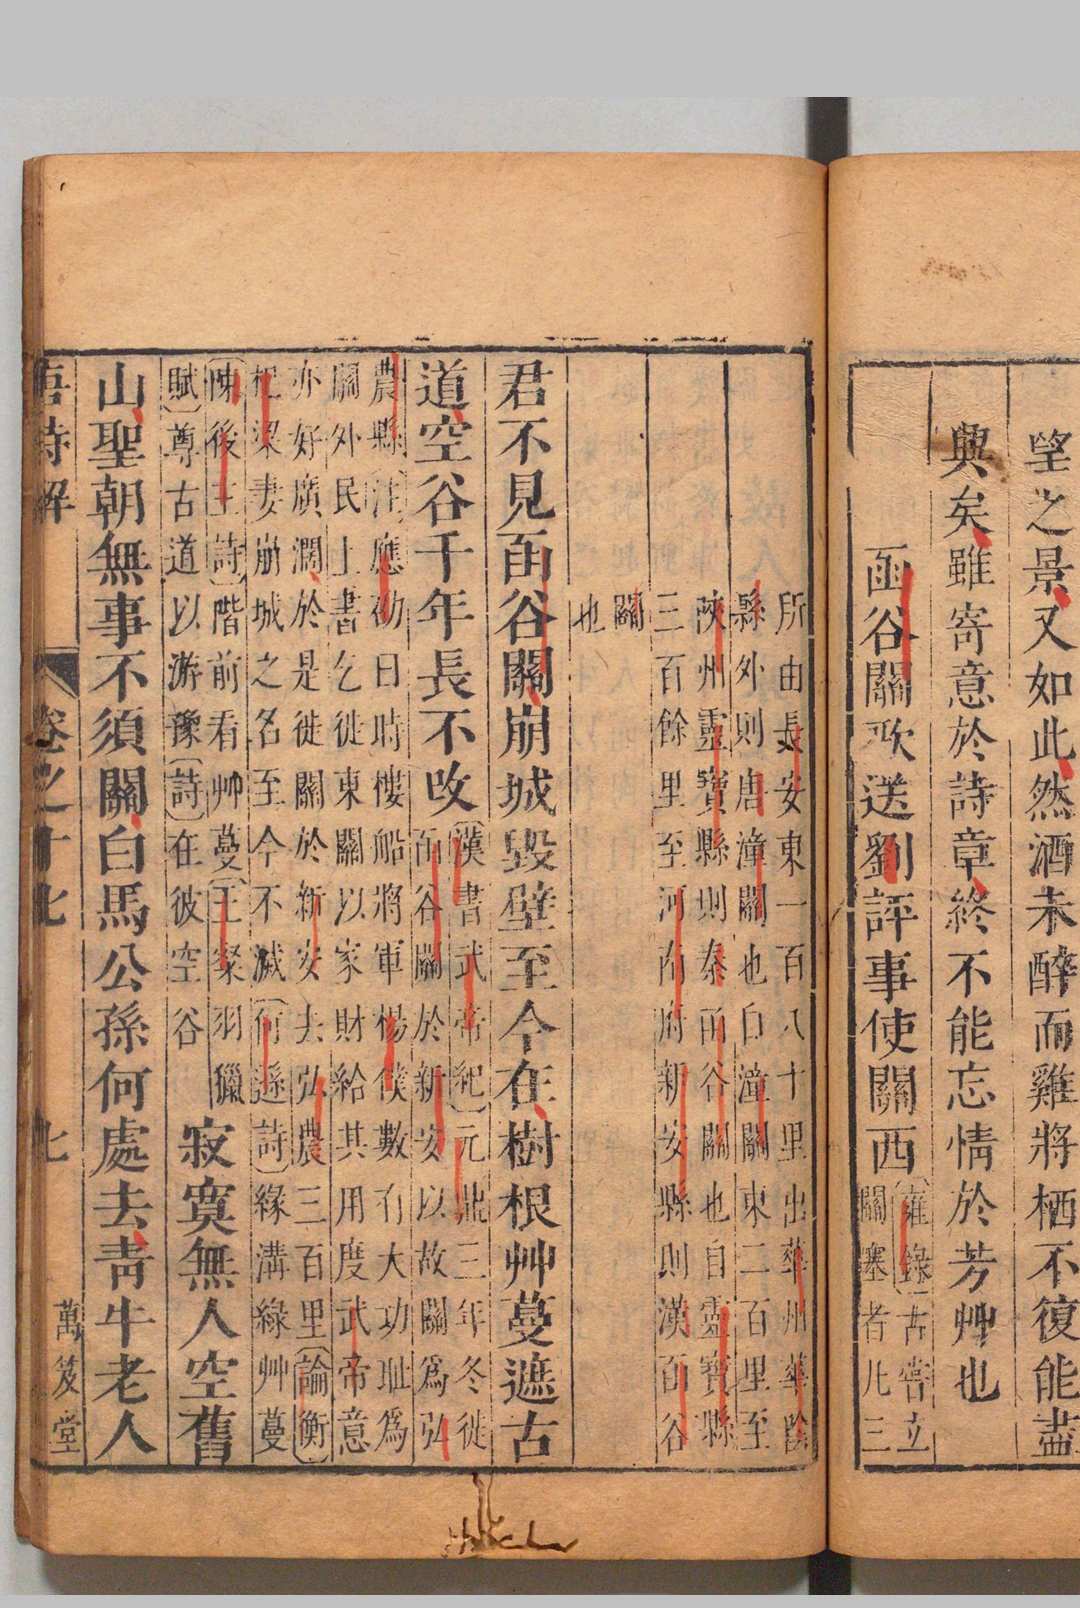 望之景又如此然酒未醉而雞將栖不復能盡
興矣雖寄意於詩章終不能忘情於芳艸也
函谷關歌送劉評事使關西
雍錄古嘗立
關塞者凡三
所由長安東一百八十里出華州華陰
縣外則唐潼關也自潼關東二百里至
陝州靈寶縣則秦函谷關也自靈寶縣
三百餘里至河南府新安縣則漢函谷
關
也
君不見函谷關崩城毀壁至今在樹根艸蔓遮古
道空谷千年長不改
漢書武帝紀元鼎三年冬徙
函谷關於新安以故關爲弘
農縣注應劭曰時樓船將軍楊僕數有大功恥爲
關外民上書乞徙東關以家財給其用度武帝意
亦好廣濶於是徙關於新安去弘農三百里論衡
杞梁妻崩城之名至今不滅何遜詩緣溝綠艸蔓
陳後主詩階前看艸蔓王粲羽獵
賦尊古道以游豫詩在彼空谷
寂寞無人空舊
山聖朝無事不須關白馬公孫何處去青牛老人
唐詩解
卷之十七
七
萬笈堂